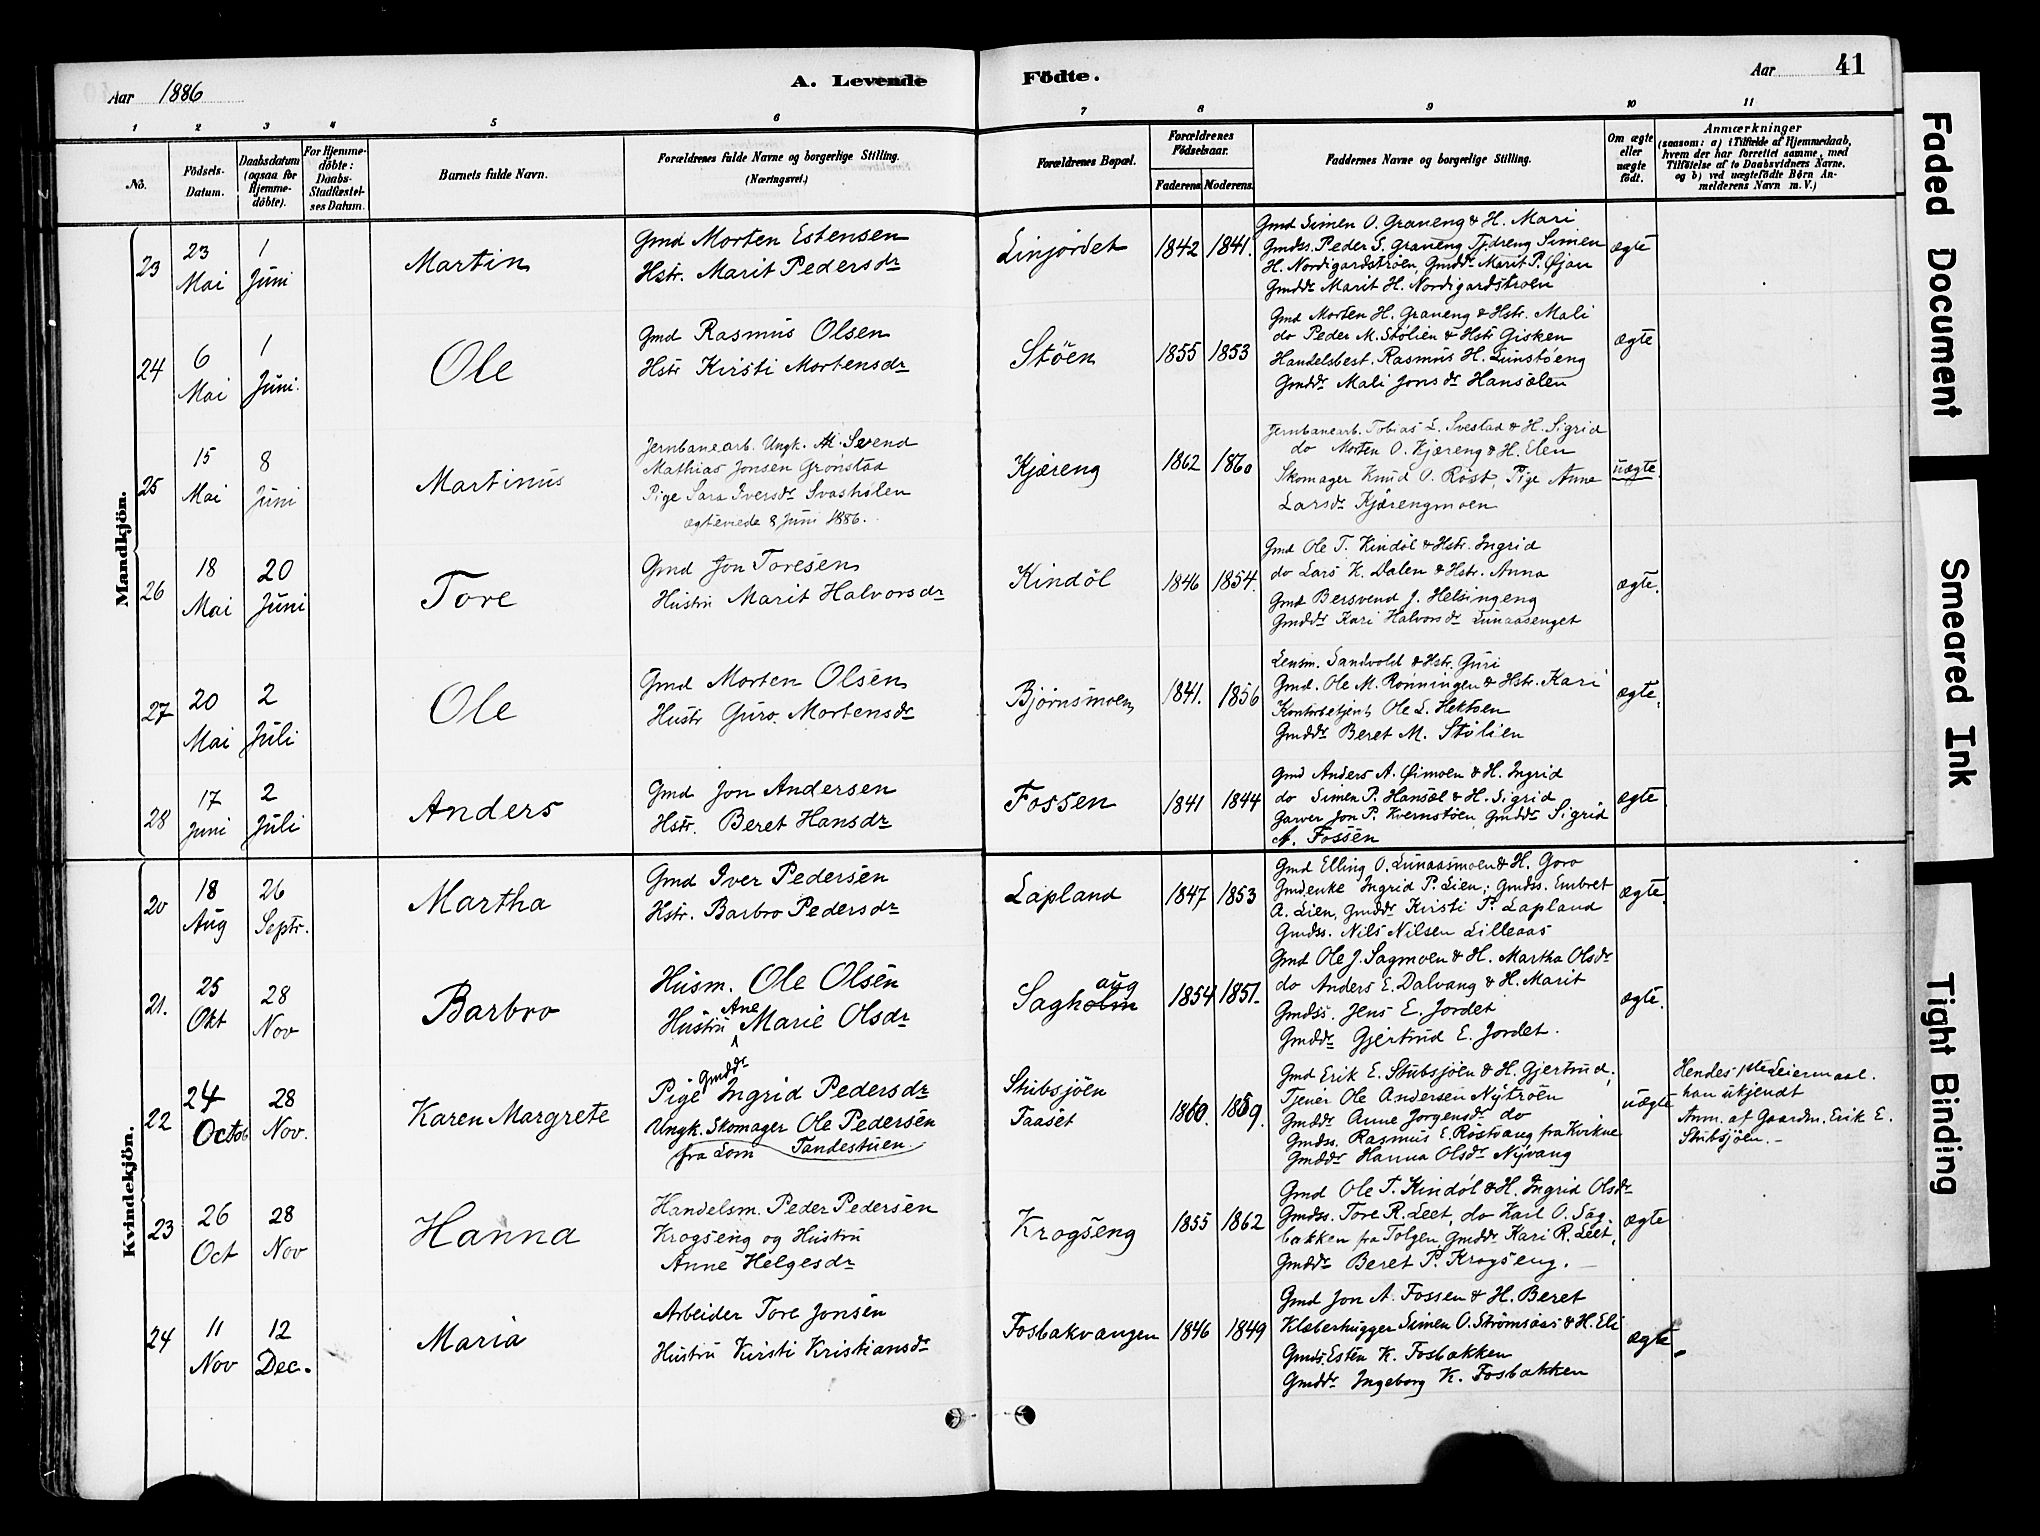 Aar 1886
A. Levende Födte.
Aar 41
1 2 3 4 5 6 7 8 9 10 11
No.
Födsels-Datum.
Daabsdatum (ogsaa for Hjemme-döbte).
For Hjemme-döbte: Daabs-Stadfæstel-ses Datum.
Barnets fulde Navn.
Forældrenes fulde Navne og borgerlige Stilling.
(Næringsvei.)
Forældrenes Bopæl.
Forældrenes Födselsaar.
Faderens Moderens.
Faddernes Navne og borgerlige Stilling.
Om ægte eller uægte födt.
Anmærkninger
(saasom: a) i Tilfælde af Hjemmedaab,
hvem der har forrettet samme, med
Tilföielse af to Daabsvidners Navne,
og b) ved uægtefödte Börn An-
melderens Navn m. V.)
Mandkjön.
23
23 Mai
1 Juni
Martin
Gmd Morten Estensen
Hstr. Marit Pedersdr
Linjordet
1842 1841.
Gmd Simen O. Graneng & H. Mari
Gmdss. Peder S. Graneng Tjdreng Simen
H. Nordigardströen, Gmddr Marit P. Øjan
Gmddr Marit H. Nordigardströen
ægte
24
6 Mai
1 Juni.
Ole
Gmd Rasmus Olsen
Hstr Kirsti Mortensdr
Stöen
1855 1853
Gmd Morten H. Graneng & Hstr. Mali
do Peder M. Stölien & Hstr Gisken
Handelsbest. Rasmus H. Lunstöeng
Gmddr Mali Jonsdr Hansölen
ægte
25
15 Mai
8 Juni
Martinus
Jernbanearb. Ungk. M. Svend
Mathias Jonsen Grönstad
Pige Sara Iversdr Svashölen
ægteviede 8 Juni 1886.
Kjæreng
1862 1860
Jernbanearb. Tobias L. Svestad & H. Sigrid
do Morten O. Kjæreng & H. Elen
Skomager Knud O. Röst, Pige Anne
Larsdr Kjærengmoen
uægte.
26
18 Mai
20 Juni
Tore
Gmd Jon Toresen
Hustru Marit Halvorsdr
Kindöl
1846 1854.
Gmd Ole T. Kindöl & Hstr. Ingrid
do Lars K. Dalen & Hstr. Anna
Gmd Bersvend J. Helsingeng
Gmddr Kari Halvorsdr Lunaasenget
ægte.
27
20 Mai
2 Juli
Ole
Gmd Morten Olsen
Hustr Guro Mortensdr
Bjørnsmoen
1841. 1856
Lensm. Sandvold & Hstr. Guri
Gmd. Ole M. Rönningen & Hstr. Kari
Kontorbetjent Ole L. Hektoen
Gmddr Beret M. Stölien
ægte.
28
17 Juni
2 Juli
Anders
Gmd Jon Andersen
Hstr. Beret Hansdr
Fossen
1841 1844
Gmd Anders A. Öimoen & H. Ingrid
do Simen P. Hansöl & H. Sigrid
Garver Jon P. Kvernstöen, Gmddr Sigrid
A. Fossen
ægte
Kvindekjön.
20
18 Aug
26 Septr.
Martha
Gmd Iver Pedersen
Hstr. Barbro Pedersdr
Lapland
1847 1853
Gmd Elling O. Lunaasmoen & H. Goro
Gmdenke Ingrid P. Lien; Gmdss. Embret
A. Lien, Gmddr Kirsti P. Lapland
Gmdss. Nils Nilsen Lilleaas
ægte.
21.
25 Okt
28 Nov
Barbro
Husm. Ole Olsen
Hustru Ane Marie Olsdr
Sagholm aug
1854 1851.
Gmd Ole J. Sagmoen & H. Martha Olsdr
do Anders E. Dalvang & H. Marit
Gmdss. Jens E. Jordet
Gmddr Gjertrud E. Jordet.
ægte.
22
24 Octob
28 Nov.
Karen Margrete
Pige Gmddr Ingrid Pedersdr
Ungk. Skomager Ole Pedersen
fra Lom Tandestuen
Stubsjöen
Taaset
1860. 1869.
Gmd Erik E. Stubsjöen & H. Gjertrud;
Tjener Ole Andersen Nytröen
Gmddr Anne Jorgensdr do
Gmdss. Rasmus E. Röstvang fra Kvikne
Gmddr Hanna Olsdr Nyvang
uægte
Hendes 1ste Leiermaal.
han ukjendt
Anm. af Gaardm. Erik E.
Stubsjöen. -
23
26 Oct
28 Nov
Hanna
Handelsm. Peder Pedersen
Krogseng og Hustru
Anne Helgesdr
Krogseng
1855 1862
Gmd Ole T. Kindöl & H. Ingrid Olsdr
Gmdss. Tore R. Leet, do Karl O. Sag
bakken fra Tolgen, Gmddr Kari R. Leet,
Gmddr Beret P. Krogseng. -
ægte
24
11 Nov
12 Dec.
Maria
Arbeider Tore Jonsen
Hustru Kirsti Kristiansdr
Fosbakvangen
1846 1849
Gmd Jon A. Fossen & H. Beret
Kleberhugger Simen O. Strömsaas & H. Eli
Gmds. Esten K. Fosbakken
Gmddr Ingeborg K. Fosbakken
ægte
Faded Document
Smeared Ink
Tight Binding